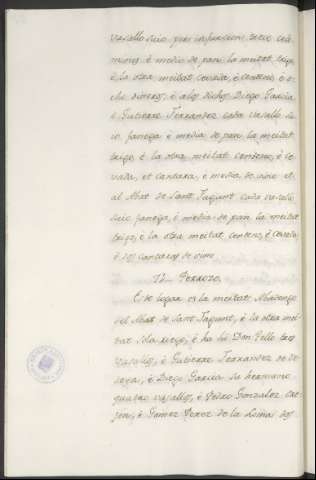 vasallo suio por infurcion trece cele
mines, è medio de pan la meitat trigo
è la otra meitat cevada, è centeno è o
cho dineros, è a los dichos Diego Garcia
è Gutierre Ferrandez cada vasallo su
io fanega è media de pan la meitat
trigo è la otra meitat centeno, è ce
vada, et cantara, è media de vino et
al Abat de Sant Fagunt cada vasallo
suio fanega, è media de pan la meitat
trigo, è la otra meitat centeno, è cevada,
è dos cantaras de vino.
Perrozo.
Este logar es la meitat Abadengo
del Abat de Sant Fagunt, è la otra mei
tat Solariego, è ha hi Don Pello tres
vasallos, è Gutierre Ferrandez de
è Diego Garcia su hermano
quatro vasallos, è Pedro Gonzalez
è Gomez Perez de la dos